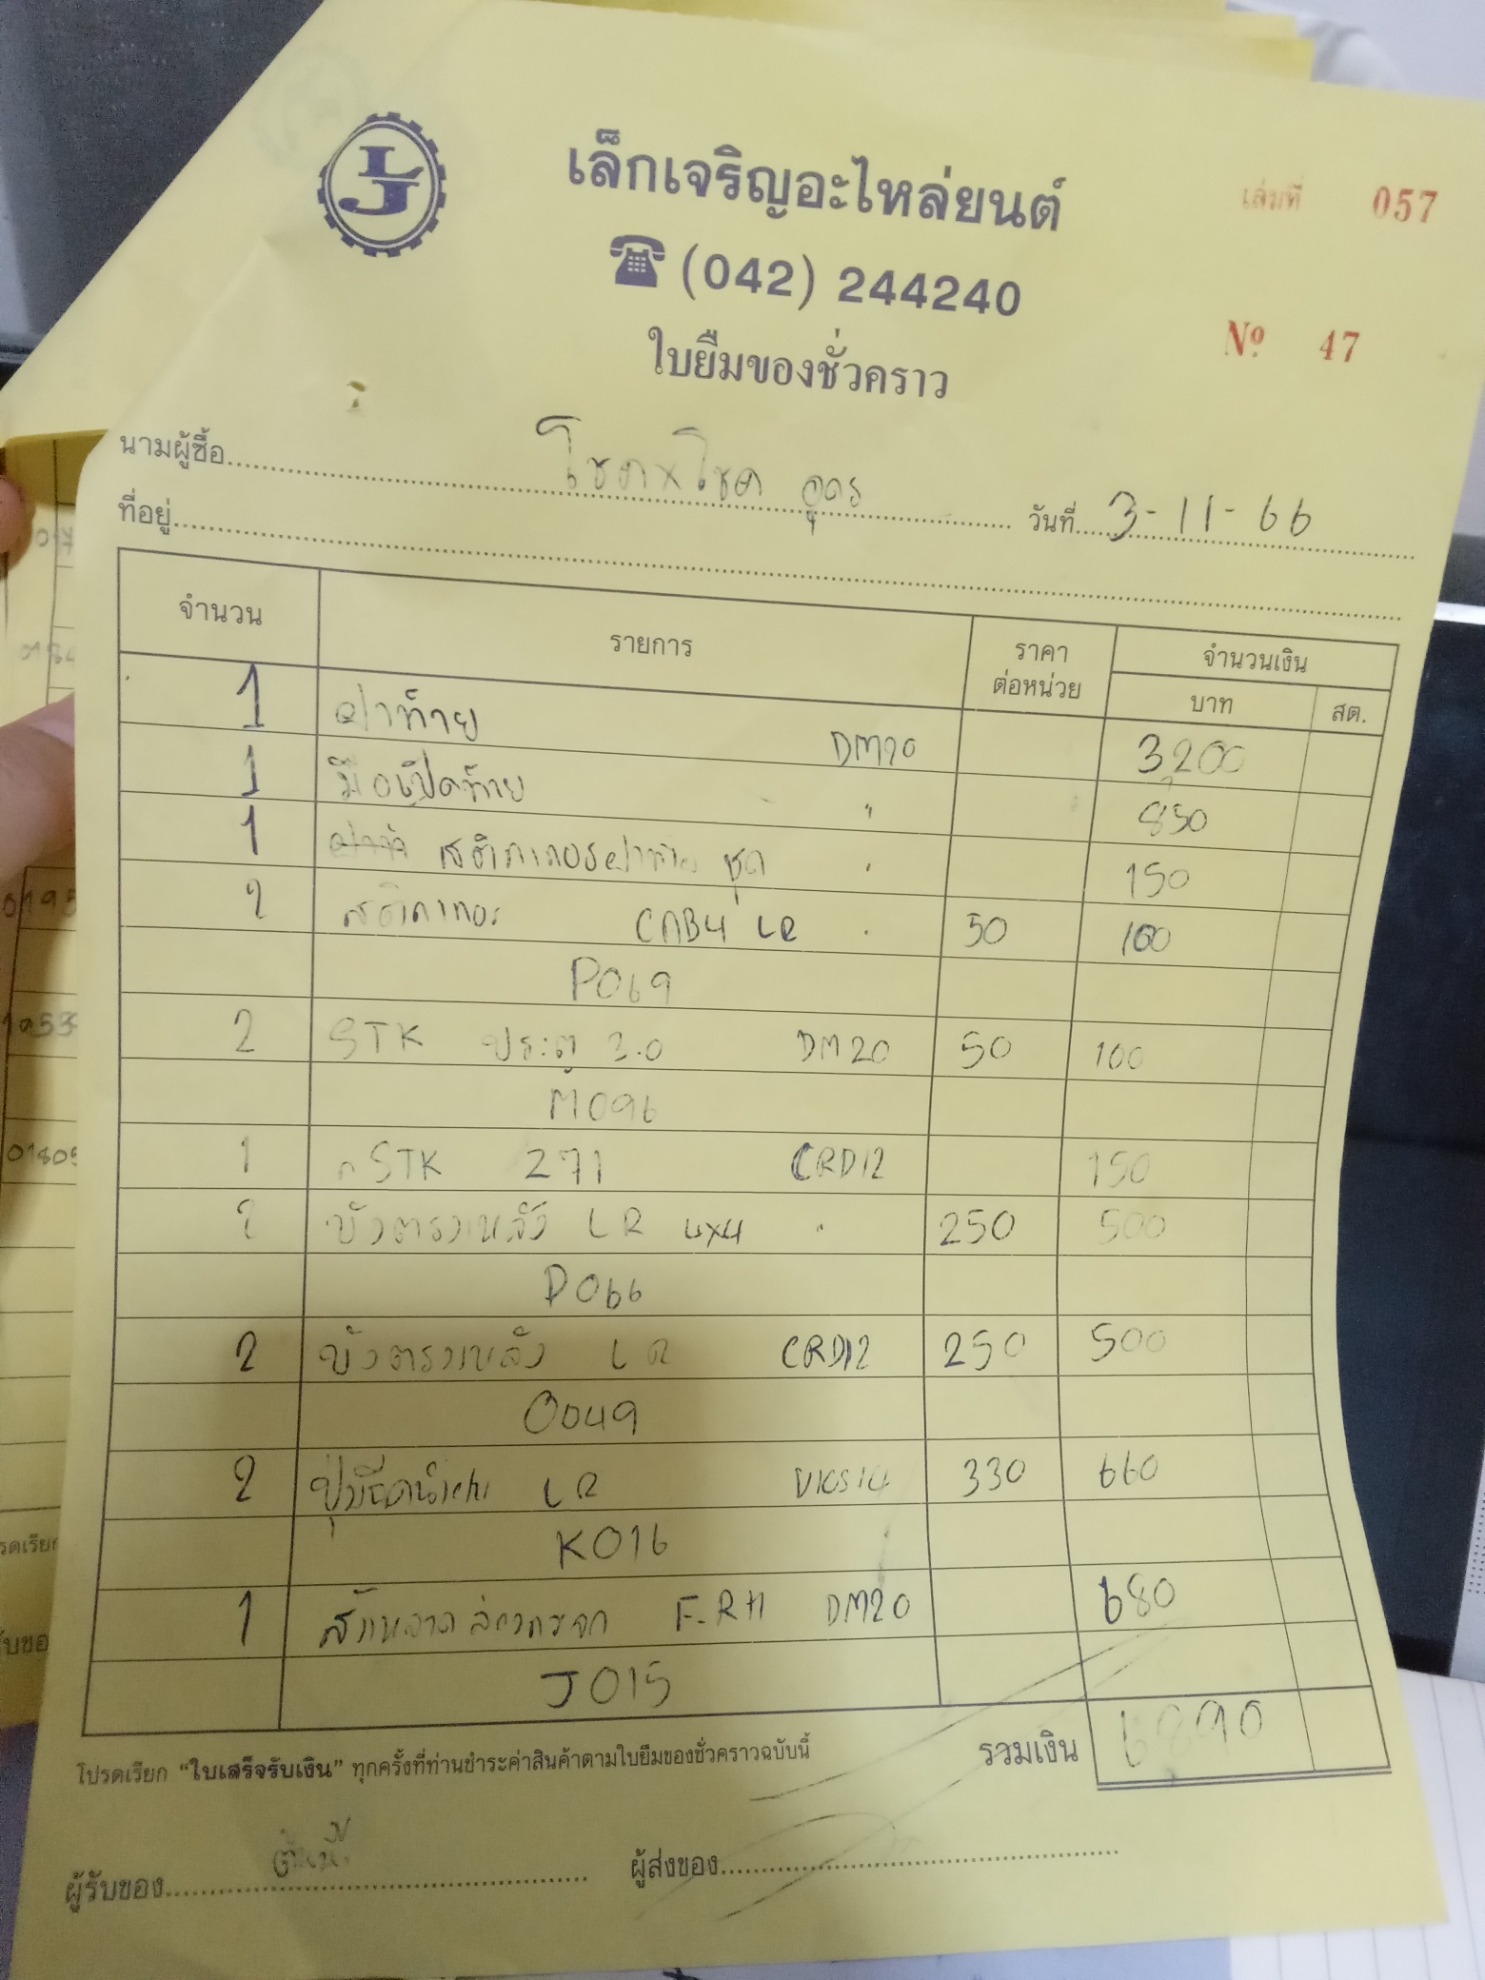 LJ
เล็กเจริญอะไหล่ยนต์
เล่มที่ 057
(042) 244240
Nº 47
ใบยืมของชั่วคราว
นามผู้ซื้อ โชคxโชค อุดร วันที่ 3-11-66
ที่อยู่
จำนวน รายการ ราคา ต่อหน่วย จำนวนเงิน บาท สต.
1 ฝาท้าย DM20 3,200
1 มือเปิดท้าย " 850
1 สติกเกอร์ฝาท้าย ชุด " 150
2 สติกเกอร์ CAB4 LR " 50 100
P069
2 STK ประตู 3.0 DM20 50 100
M096
1 STK 271 CRD12 150
2 บังตรงหลัง LR 4x4 " 250 500
P066
2 บังตรงหลัง LR CRD12 250 500
O049
2 ปุ่มฉีดน้ำฝน LR 330 660
K016
1 F-RH DM20 680
J015
โปรดเรียก "ใบเสร็จรับเงิน" ทุกครั้งที่ท่านชำระค่าสินค้าตามใบยืมของชั่วคราวฉบับนี้
รวมเงิน 6890
ผู้รับของ ผู้ส่งของ